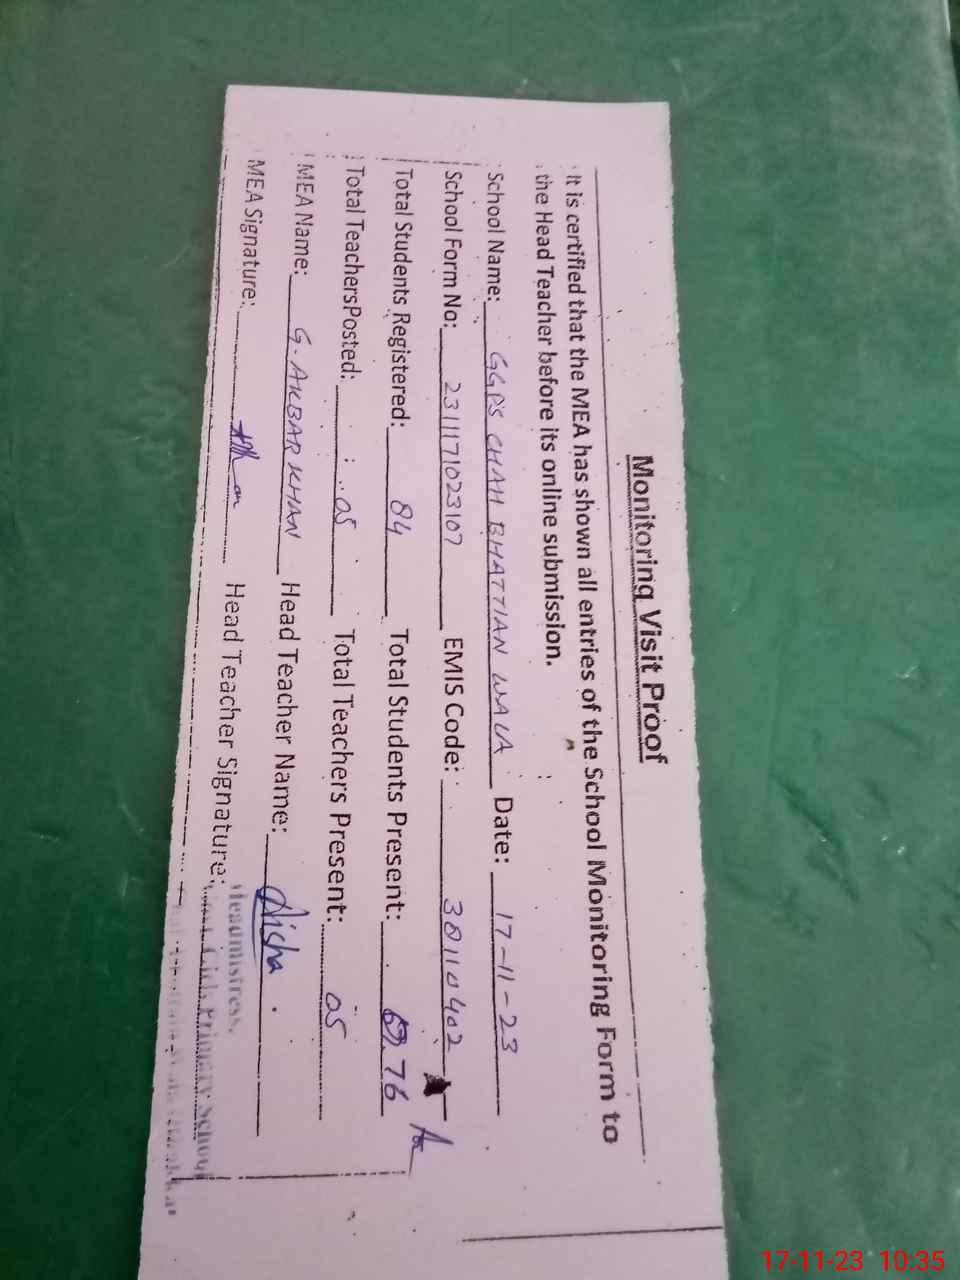 Monitoring Visit Proof
It is certified that the MEA has shown all entries of the School Monitoring Form to
the Head Teacher before its online submission.
School Name: GGPS CHAH BHATTIAN WALA Date: 17-11-23
School Form No: 2311171023107 EMIS Code: 38110402
Total Students Registered: 84 Total Students Present: 76
Total TeachersPosted: 05 Total Teachers Present: 05
MEA Name: G. AKBAR KHAN Head Teacher Name: Aisha
MEA Signature: Head Teacher Signature:
Headmistress,
Govt. Girls Primary School
17-11-23 10:35